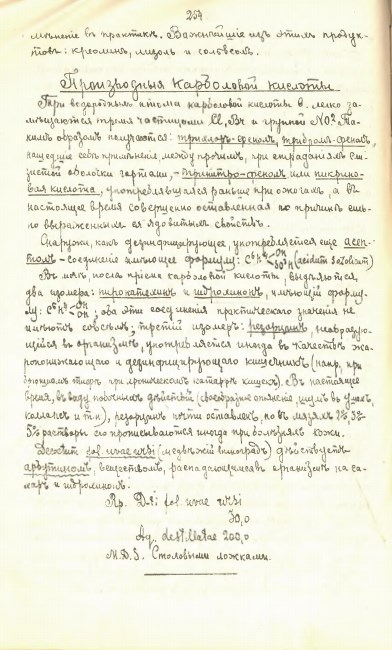 254
мѣненіе въ практикѣ. Важнѣйшіе изъ этихъ продук-
товъ: креолинъ, лизолъ и сольвеолъ.
Производныя карболовой кислоты
Три водородныхъ атома карболовой кислоты легко за-
мѣщаются тремя частицами Cl, Br и группой NO². Та-
кимъ образомъ получаются: трихлоръ-фенолъ, трибромъ-фенолъ,
нашедшіе себѣ примѣненіе между прочимъ, при страданіяхъ сли-
зистой оболочки гортани, – тринитро-фенолъ или пикрино-
вая кислота, употреблявшаяся раньше при ожогахъ, а въ
настоящее время совершенно оставленная по причинѣ силь-
но выраженныхъ ея ядовитыхъ свойствъ.
Снаружи, какъ дезинфицирующее, употребляется еще асеп-
толъ – соединеніе имѣющее формулу: C⁶H⁴ OH SO³H (acidum sozolicum)
Въ мочѣ, послѣ пріема карболовой кислоты, выдѣляются,
два изомера: пирокатехинъ и гидрохинонъ, имѣющій форму-
лу: C⁶H⁴ OH OH; оба эти соединенія практическаго значенія не
имѣютъ совсѣмъ; третій изомеръ: резорцинъ, необразую-
щійся въ организмѣ, употребляется иногда въ качествѣ жа-
ропонижающаго и дезинфицирующаго кишечникъ (напр. при
брюшномъ тифѣ, при хроническомъ катаррѣ кишекъ). Въ настоящее
время, въ виду побочныхъ дѣйствій (своеобразное опьяненіе, шумъ въ ушахъ,
коллапсъ и т.п.), резорцинъ почти оставленъ, но въ мазяхъ 2% 3%
5% растворы его прописываются иногда при болѣзняхъ кожи.
Decoctum fol. uvae ursi (медвѣжій виноградъ) дѣйствуетъ
арбутиномъ, веществомъ, распадающимся въ организмѣ на са-
харъ и гидрохинонъ.
Rp. D-ti fol. uvae ursi
30,0
Aq. destillatae 200,0
M.D.S. Столовыми ложками.